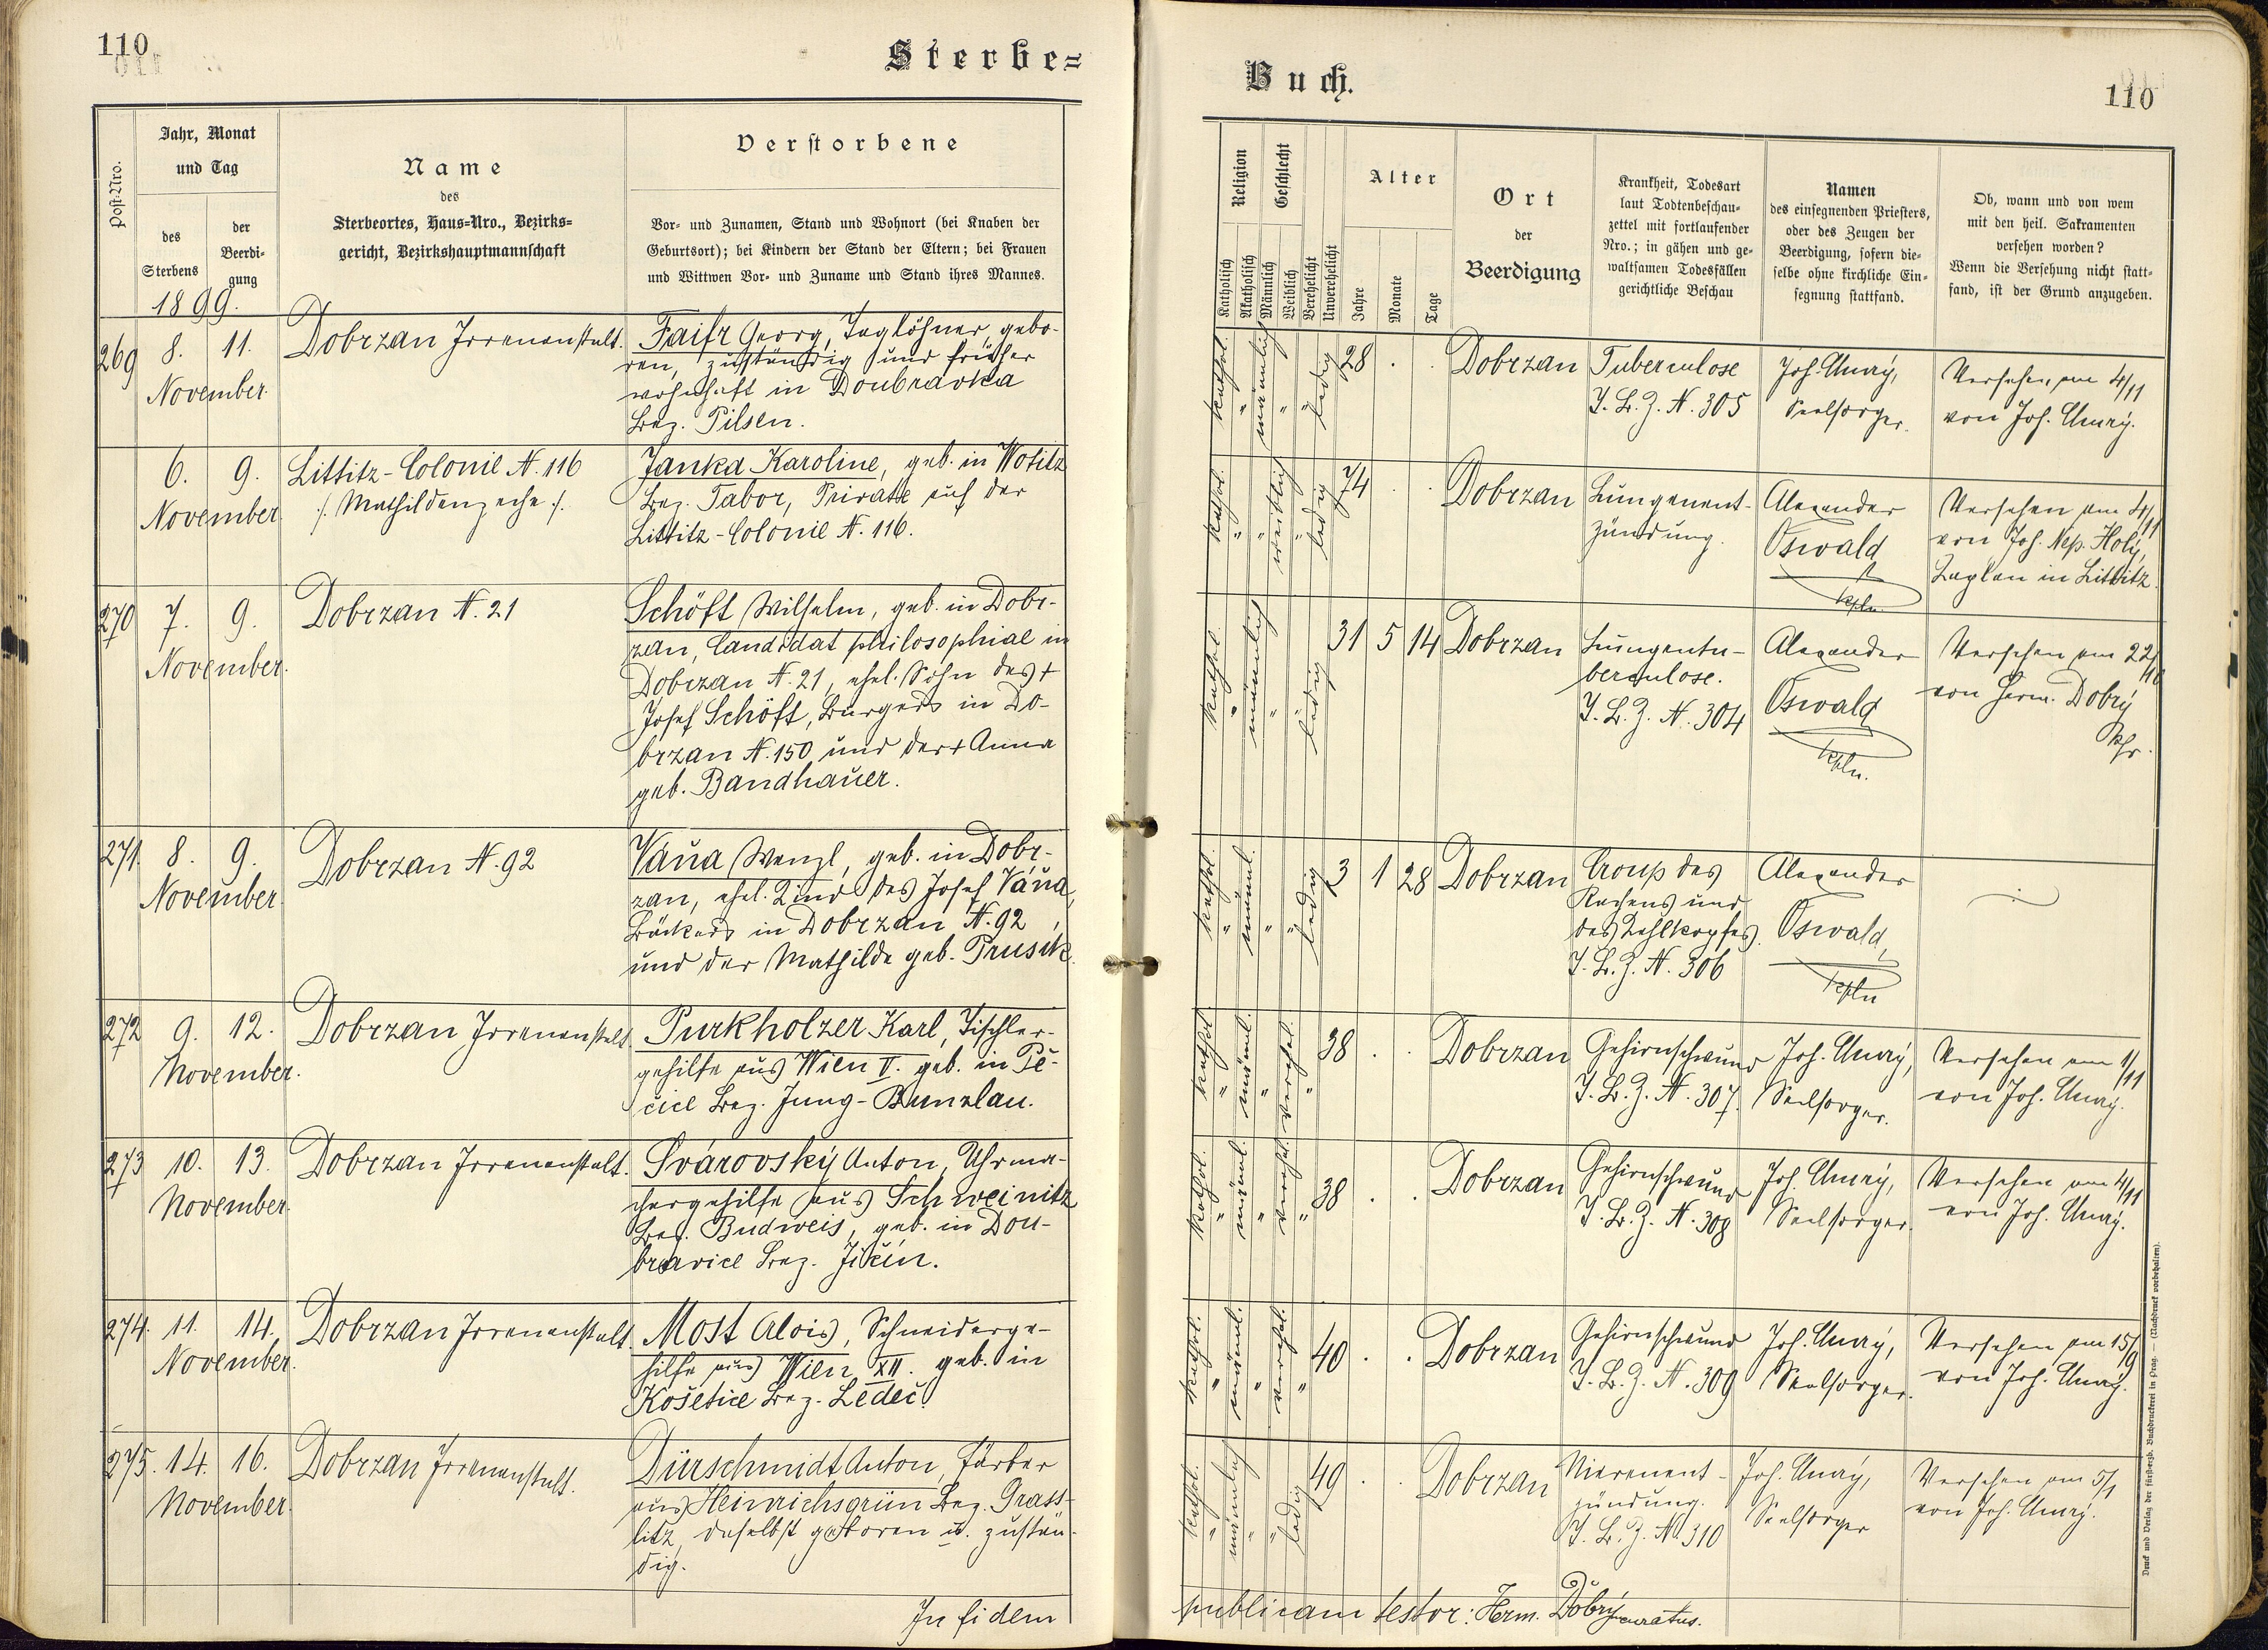 110
Sterbe=
Jahr, Monat
und Tag
Post-Nro.
des
Sterbens
der
Beerdi-
gung
Name
des
Sterbeortes, Haus-Nro., Bezirks-
gericht, Bezirkshauptmannschaft
Verstorbene
Vor- und Zunamen, Stand und Wohnort (bei Knaben der
Geburtsort); bei Kindern der Stand der Eltern; bei Frauen
und Wittwen Vor- und Zuname und Stand ihres Mannes.
1899.
269 8. 11.
November.
Dobrzan Irrenanstalt.
Faifr Georg, Taglöhner, gebo-
ren, zuständig und früher
wohnhaft in Doubravka
Bez. Pilsen.
6. 9.
November
Littitz-Colonie N. 116
/: Mathildenzeche :/.
Janka Karoline, geb. in Wotitz
Bez. Tabor, Private auf der
Littitz-Colonie N. 116.
270 7. 9.
November.
Dobrzan N. 21
Schöft Wilhelm, geb. in Dobr-
zan, Candidat philosophiae in
Dobrzan N. 21, ehel. Sohn des +
Josef Schöft, Bürgers in Do-
brzan N. 150 und der + Anna
geb. Bandhauer.
271. 8. 9.
November.
Dobrzan N. 92
Váňa Wenzl, geb. in Dobr-
zan, ehel. Kind des Josef Váňa,
Bäckers in Dobrzan N. 92,
und der Mathilde geb. Prusik.
272 9. 12.
November.
Dobrzan Irrenanstalt
Purkholzer Karl, Tischler-
gehilfe aus Wien V. geb. in Pě-
čice Bez. Jung-Bunzlau.
273 10. 13.
November.
Dobrzan Irrenanstalt.
Svárovský Anton, Uhrma-
chergehilfe aus Schweinitz
Bez. Budweis, geb. in Dou-
bravice Bez. Jičín.
274. 11. 14.
November.
Dobrzan Irrenanstalt.
Most Alois, Schneiderge-
hilfe aus Wien XII. geb. in
Košetice Bez. Ledeč.
275. 14. 16.
November.
Dobrzan Irrenanstalt.
Dürschmidt Anton, Färber
aus Heinrichsgrün Bez. Grass-
litz, daselbst geboren u. zustän-
dig.
In fidem
Buch.
110
Religion
Geschlecht
Katholisch
Akatholisch
Männlich
Weiblich
Verehelicht
Unverehelicht
Alter
Jahre
Monate
Tage
Ort
der
Beerdigung
Krankheit, Todesart
laut Todtenbeschau-
zettel mit fortlaufender
Nro.; in gähen und ge-
waltsamen Todesfällen
gerichtliche Beschau
Namen
des einsegnenden Priesters,
oder des Zeugen der
Beerdigung, sofern die-
selbe ohne kirchliche Ein-
segnung stattfand.
Ob, wann und von wem
mit den heil. Sakramenten
versehen worden?
Wenn die Versehung nicht statt-
fand, ist der Grund anzugeben.
kathol. " männlich " " ledig 28 . . Dobrzan
Tuberculose
T. B. Z. N. 305
Seelsorger.
Versehen am 4/11
von Joh.
kathol. " " weiblich " ledig 74 . . Dobrzan
Lungenent-
zündung.
Alexander
Oswald
kpln.
Versehen am 4/11
von Joh. Nep. Holý,
Kaplan in Littitz.
kathol. " männlich " ledig 31 5 14 Dobrzan
Lungentu-
berculose.
T. B. Z. N. 304
Alexander
Oswald
kpln.
Versehen am 22/10
von Herm. Dobrý
kathol. " männl. " " ledig 3 1 28 Dobrzan
Croup des
Rachens und
des Kehlkopfes.
T. B. Z. N. 306
Alexander
Oswald,
kpln
kathol. " männl. " verehel. " 38 . . Dobrzan
Gehirnschwund
T. B. Z. N. 307.
Seelsorger.
Versehen am 1/11
von Joh.
kathol. " männl. " verehel. " 38 . . Dobrzan
Gehirnschwund
T. B. Z. N. 308
Seelsorger.
Versehen am 4/11
von Joh.
kathol. " männl. " verehel. " 40 . . Dobrzan
Gehirnschwund
T. B. Z. N. 309
Seelsorger.
Versehen am 15/9
von Joh.
kathol. " männlich " " ledig 49 . . Dobrzan
Nierenent-
zündung.
T. B. Z. N. 310
Seelsorger
Versehen am 5/1
von Joh.
publicam testor: Herm. Dobrý curatus.
Druck und Verlag der fürsterzb. Buchdruckerei in Prag. — (Nachdruck vorbehalten).